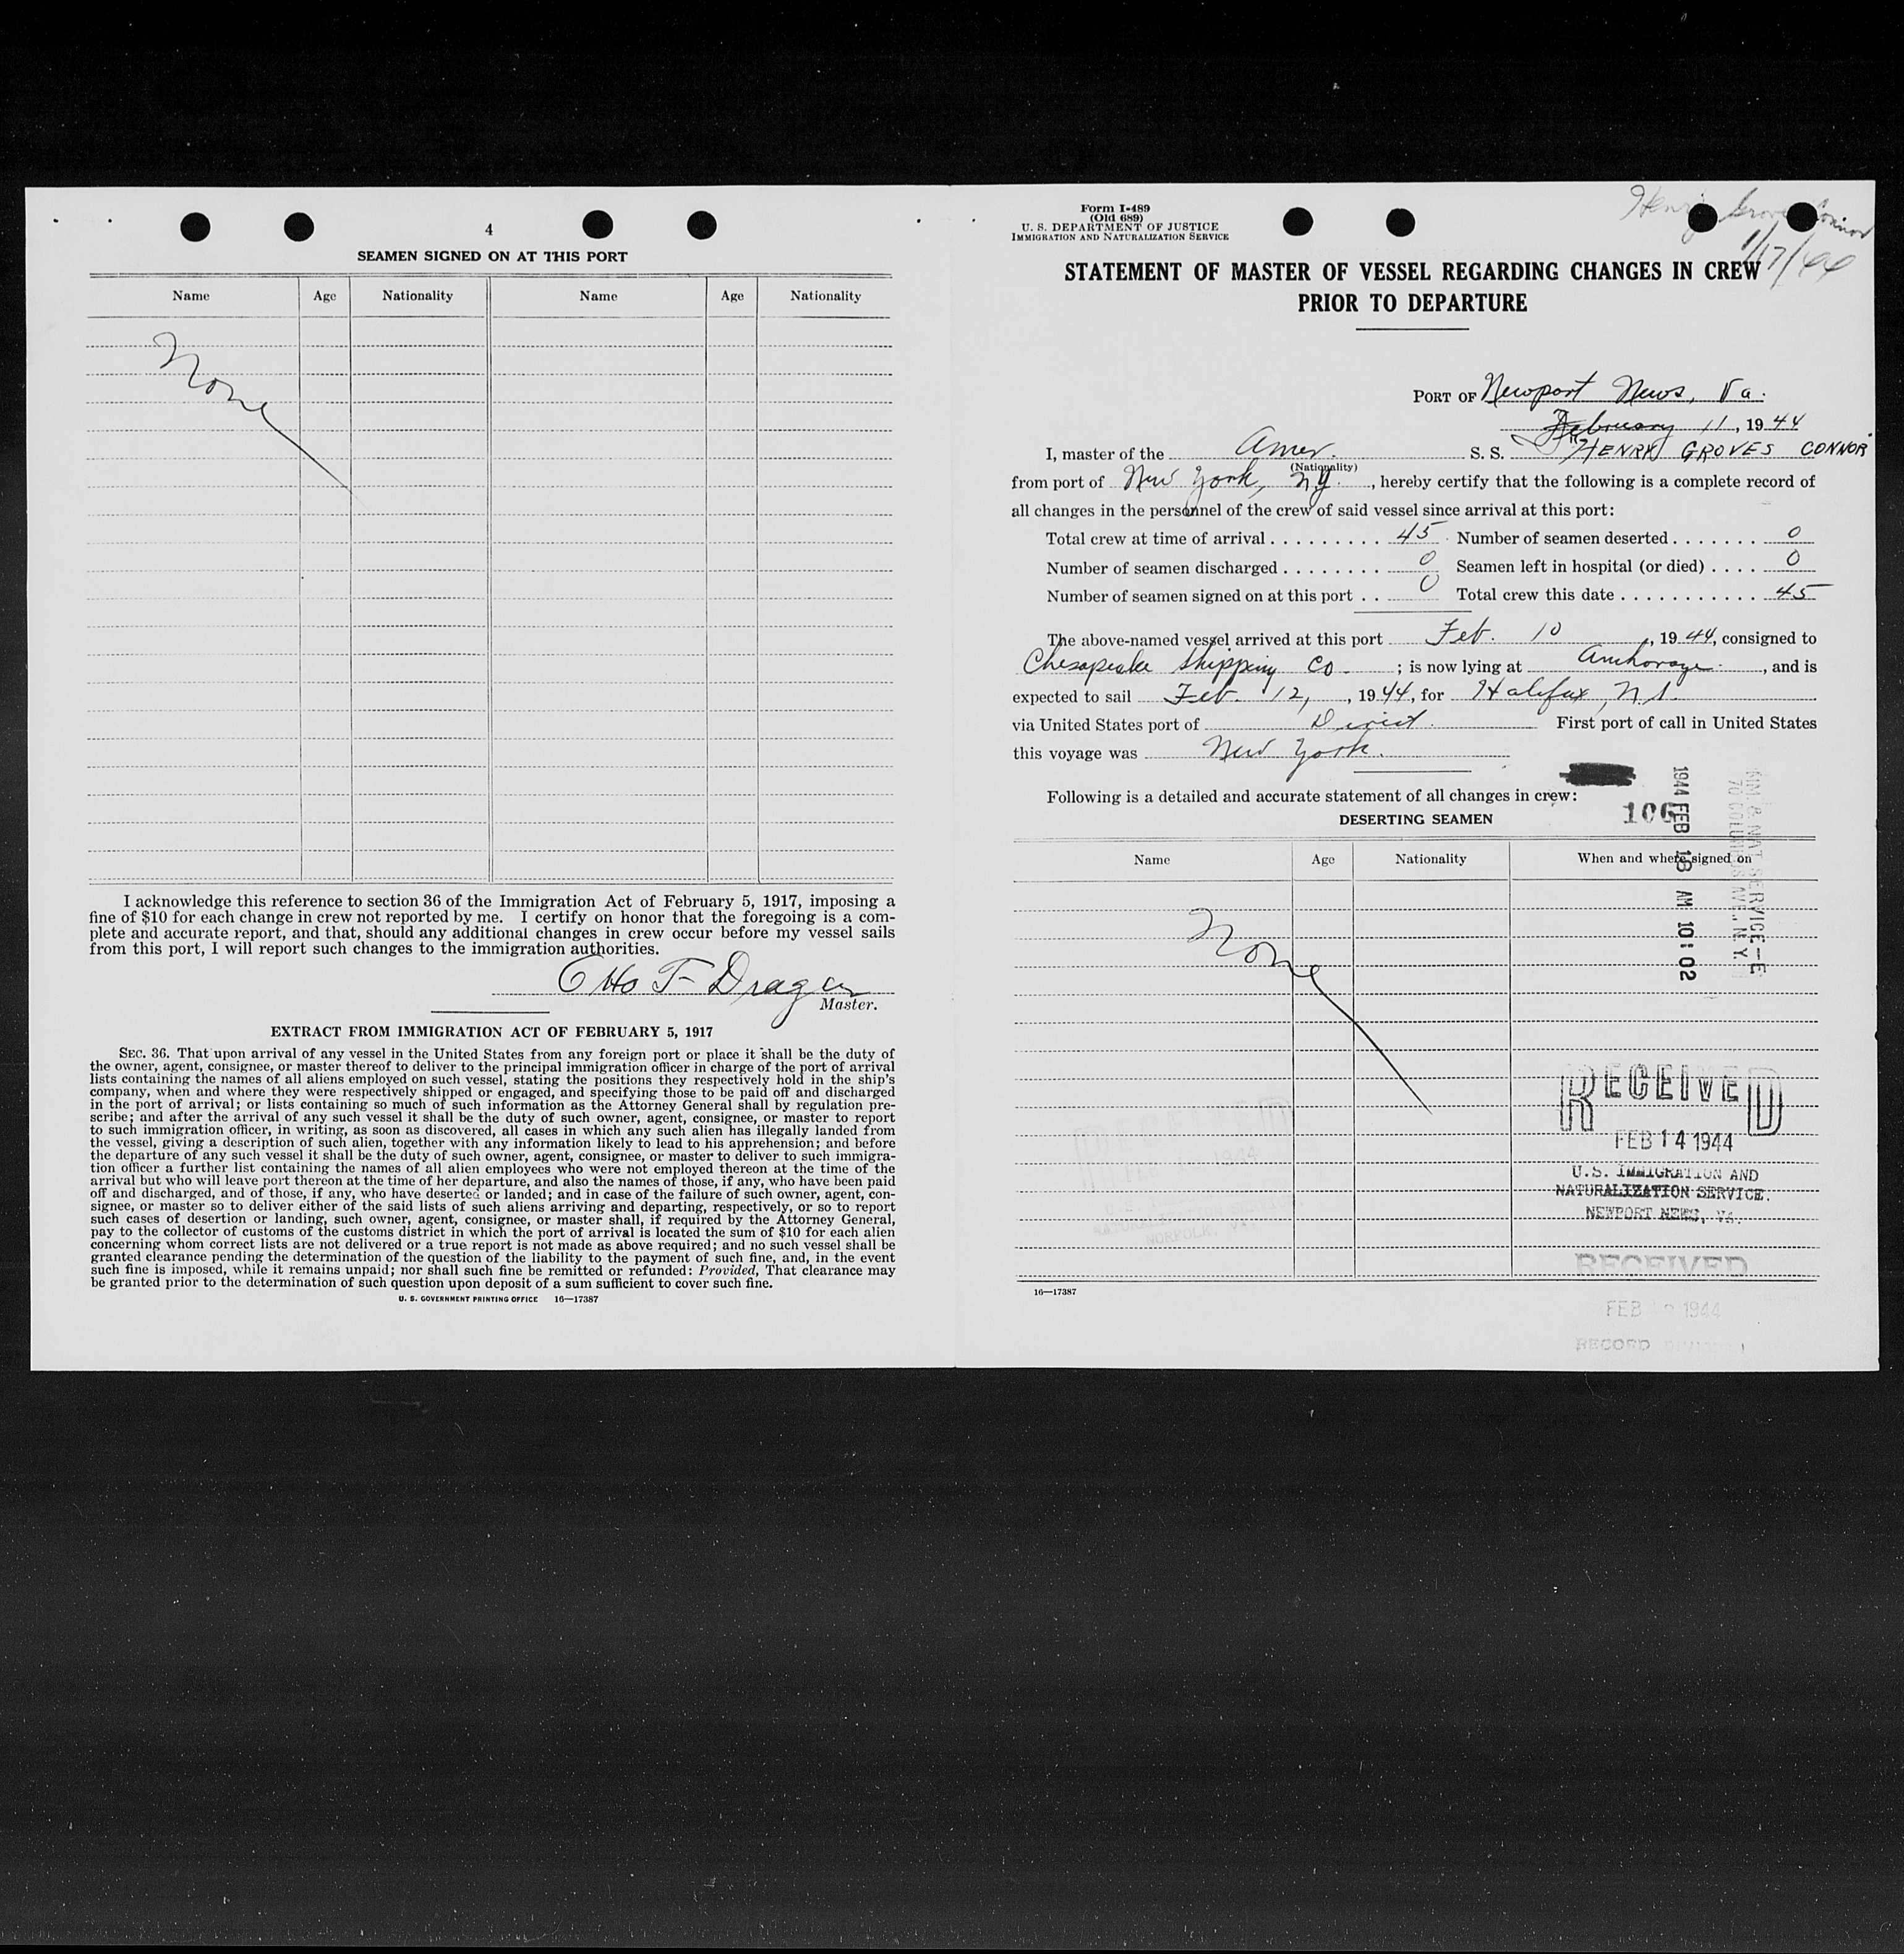 4
SEAMEN SIGNED ON AT THIS PORT
Name Age Nationality Name Age Nationality
None
I acknowledge this reference to section 36 of the Immigration Act of February 5, 1917, imposing a
fine of $10 for each change in crew not reported by me. I certify on honor that the foregoing is a com-
plete and accurate report, and that, should any additional changes in crew occur before my vessel sails
from this port, I will report such changes to the immigration authorities.
Otto F Dragen
Master.
EXTRACT FROM IMMIGRATION ACT OF FEBRUARY 5, 1917
SEC. 36. That upon arrival of any vessel in the United States from any foreign port or place it shall be the duty of
the owner, agent, consignee, or master thereof to deliver to the principal immigration officer in charge of the port of arrival
lists containing the names of all aliens employed on such vessel, stating the positions they respectively hold in the ship's
company, when and where they were respectively shipped or engaged, and specifying those to be paid off and discharged
in the port of arrival; or lists containing so much of such information as the Attorney General shall by regulation pre-
scribe; and after the arrival of any such vessel it shall be the duty of such owner, agent, consignee, or master to report
to such immigration officer, in writing, as soon as discovered, all cases in which any such alien has illegally landed from
the vessel, giving a description of such alien, together with any information likely to lead to his apprehension; and before
the departure of any such vessel it shall be the duty of such owner, agent, consignee, or master to deliver to such immigra-
tion officer a further list containing the names of all alien employees who were not employed thereon at the time of the
arrival but who will leave port thereon at the time of her departure, and also the names of those, if any, who have been paid
off and discharged, and of those, if any, who have deserted or landed; and in case of the failure of such owner, agent, con-
signee, or master so to deliver either of the said lists of such aliens arriving and departing, respectively, or so to report
such cases of desertion or landing, such owner, agent, consignee, or master shall, if required by the Attorney General,
pay to the collector of customs of the customs district in which the port of arrival is located the sum of $10 for each alien
concerning whom correct lists are not delivered or a true report is not made as above required; and no such vessel shall be
granted clearance pending the determination of the question of the liability to the payment of such fine, and, in the event
such fine is imposed, while it remains unpaid; nor shall such fine be remitted or refunded: Provided, That clearance may
be granted prior to the determination of such question upon deposit of a sum sufficient to cover such fine.
U. S. GOVERNMENT PRINTING OFFICE 16—17387
Form I-489
(Old 689)
U. S. DEPARTMENT OF JUSTICE
IMMIGRATION AND NATURALIZATION SERVICE
Henry Groves Connor
1/17/44
STATEMENT OF MASTER OF VESSEL REGARDING CHANGES IN CREW
PRIOR TO DEPARTURE
PORT OF Newport News, Va.
February 11, 1944
I, master of the Amer. S. S. HENRY GROVES CONNOR
(Nationality)
from port of New York, NY., hereby certify that the following is a complete record of
all changes in the personnel of the crew of said vessel since arrival at this port:
Total crew at time of arrival . . . . . . . . . 45 Number of seamen deserted . . . . . . . 0
Number of seamen discharged . . . . . . . . 0 Seamen left in hospital (or died) . . . . 0
Number of seamen signed on at this port . . 0 Total crew this date . . . . . . . . . . . 45
The above-named vessel arrived at this port Feb. 10, 1944, consigned to
Chesapeake Shipping Co ; is now lying at Anchorage, and is
expected to sail Feb. 12, , 1944, for Halifax, N.S.
via United States port of Direct. First port of call in United States
this voyage was New York.
Following is a detailed and accurate statement of all changes in crew:
106
DESERTING SEAMEN
1944 FEB 18 AM 10:02
IMM & NAT SERVICE-E
70 COLUMBUS AVE., N.Y.
Name Age Nationality When and where signed on
None
RECEIVED
FEB 14 1944
U.S. IMMIGRATION AND
NATURALIZATION SERVICE.
NEWPORT NEWS, VA.
RECEIVED
FEB 1944
RECORD DIVISION
16—17387